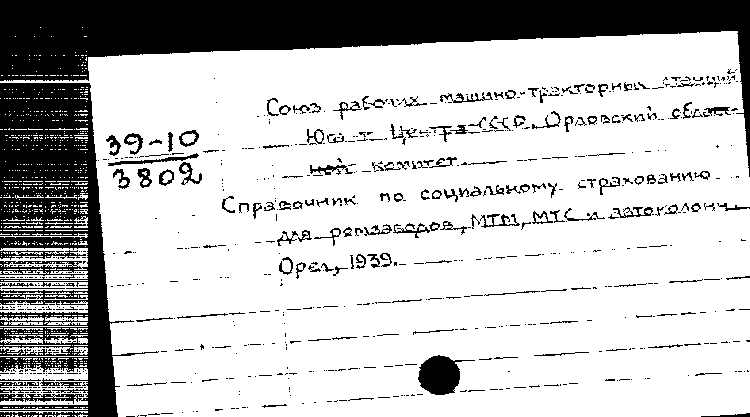 Союз рабочих машино-тракторных станций
Юга и Центра СССР. Орловский област-
ной комитет.
39-10
3802
Справочник по социальному страхованию
для ремзаводов, МТМ, МТС и автоколонн.
Орел, 1939.